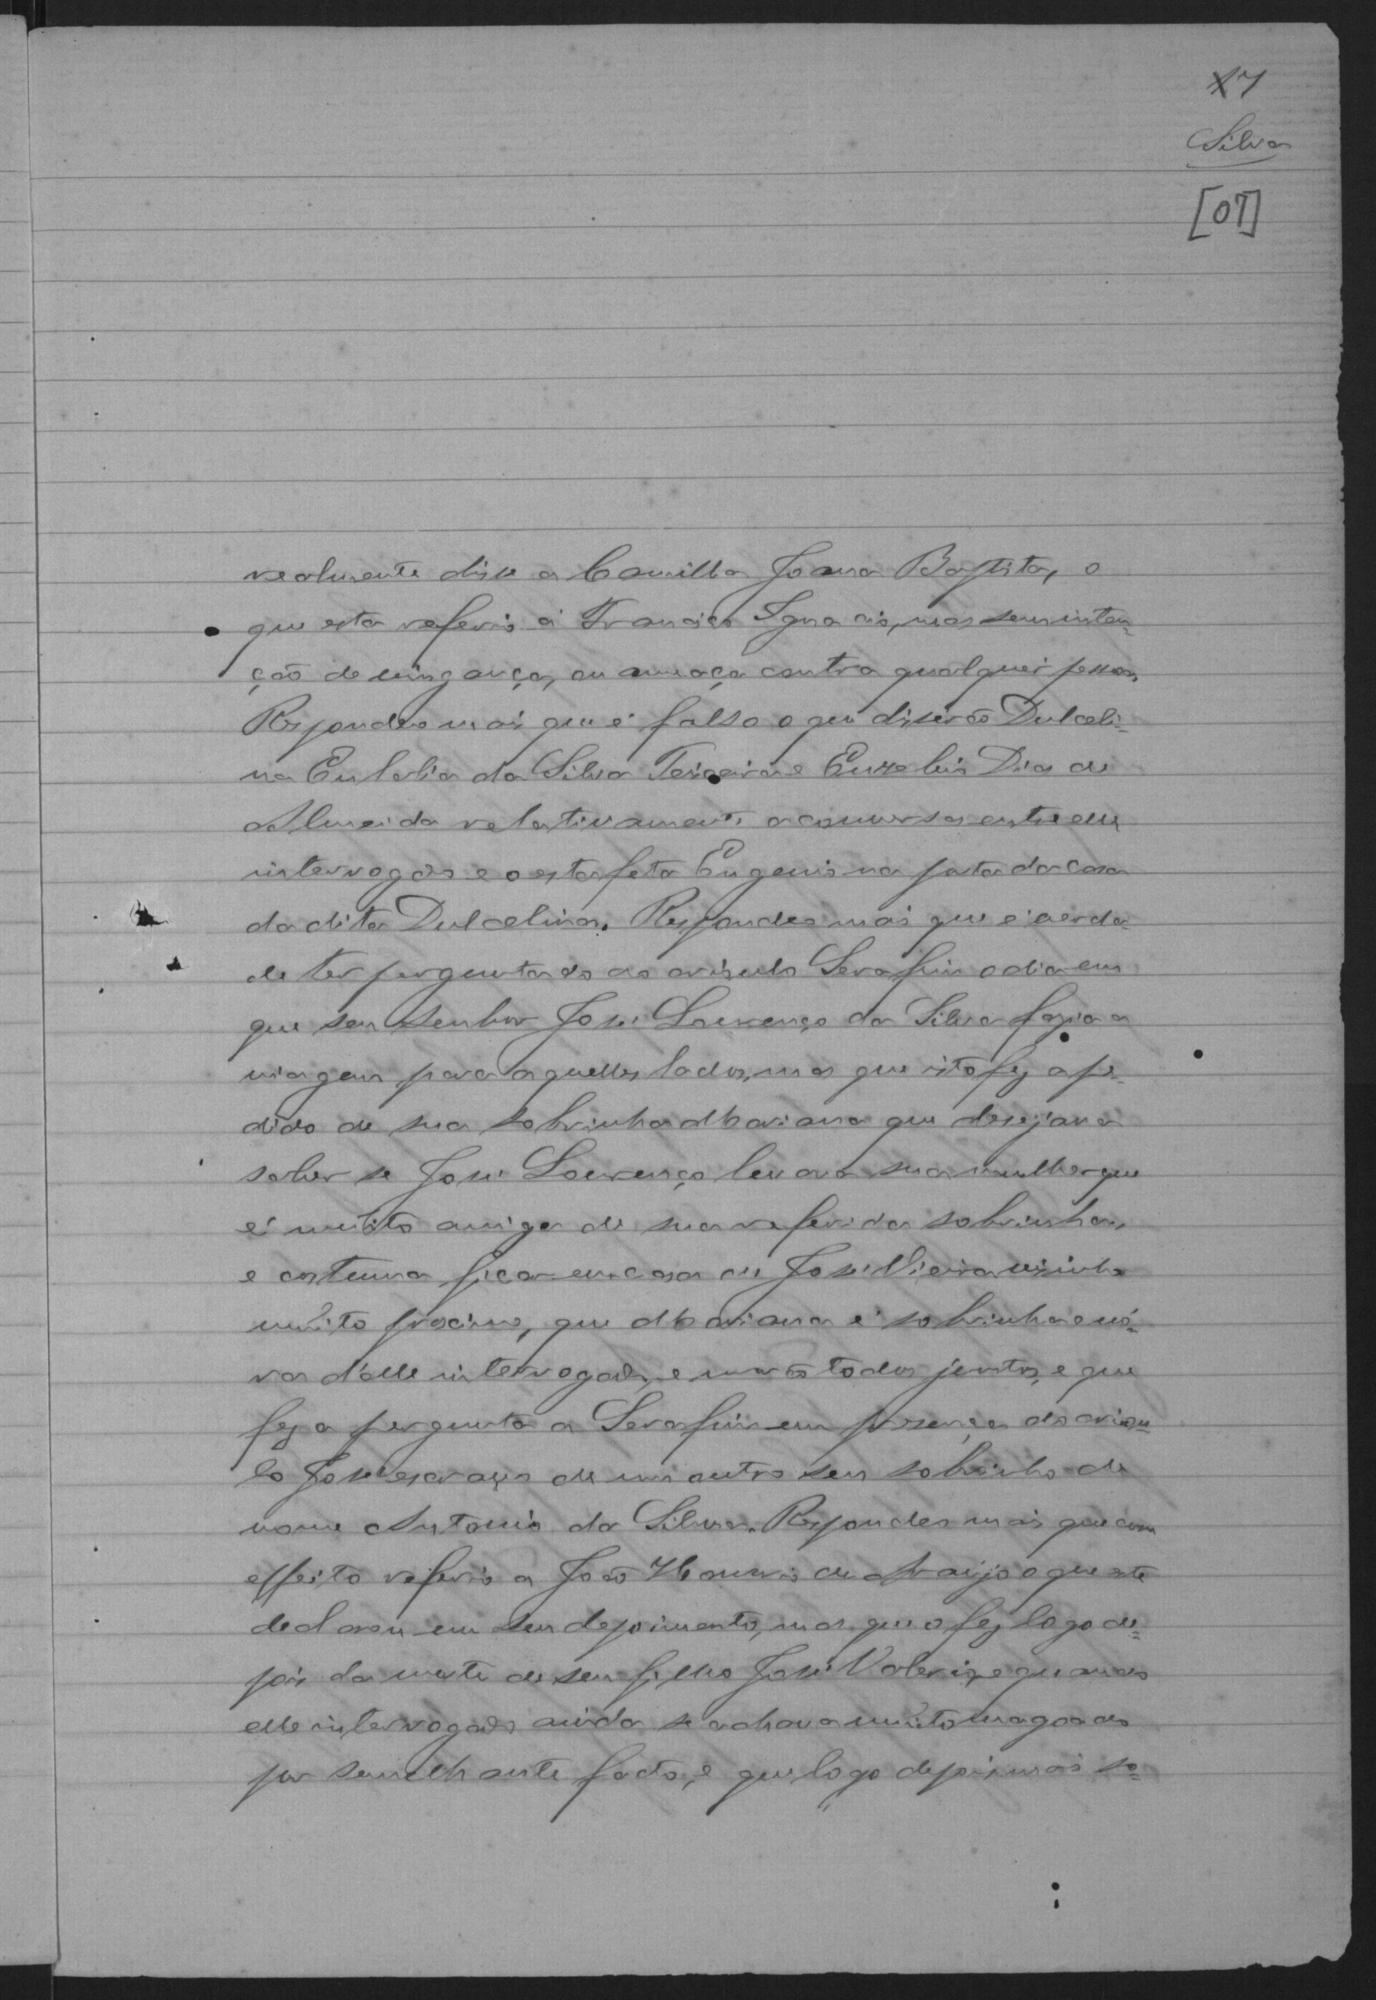 17
Silva
[07]
realmente disse a Camilla Joana Baptista, o
que esta referio á Francisco Ignacio, mas sem inten-
ção de vingança, ou ameaça contra qualquer pessoa,
Respondeo mais que é falso o que diserão Dulceli-
na Eulalia da Silva Teixeira e Euzebio Dias de
Almeida relativamente a conversa entre elle
interrogado e o estafeta Eugenio na porta da casa
da dita Dulcelina. Respondeo mais que é verda-
de ter perguntado ao crioulo Serafim o dia em
que seu senhor José Lourenço da Silva fazia a
viagem para aquelles lados, mas que isto fez a pe-
dido de sua sobrinha Mariana que desejava
saber se José Lourenço levava sua mulher que
é muito amiga de sua referida sobrinha,
e costuma ficar em casa de José Vieira visinho
muito proximo, que Mariana é sobrinha e nó-
ra d'elle interrogado, e morão todos juntos, e que
fez a pergunta a Serafim em presença do criou-
lo José escravo de um outro seu sobrinho de
nome Antonio da Silva. Respondeo mais que com
effeito referio a João Honorio de Araujo o que este
declarou em seu depoimento, mas que o fez logo de-
pois da morte de seu filho José Valerio, e quando
elle interrogado ainda se achava muito magoado
por semelhante facto, e que logo depois mais so-